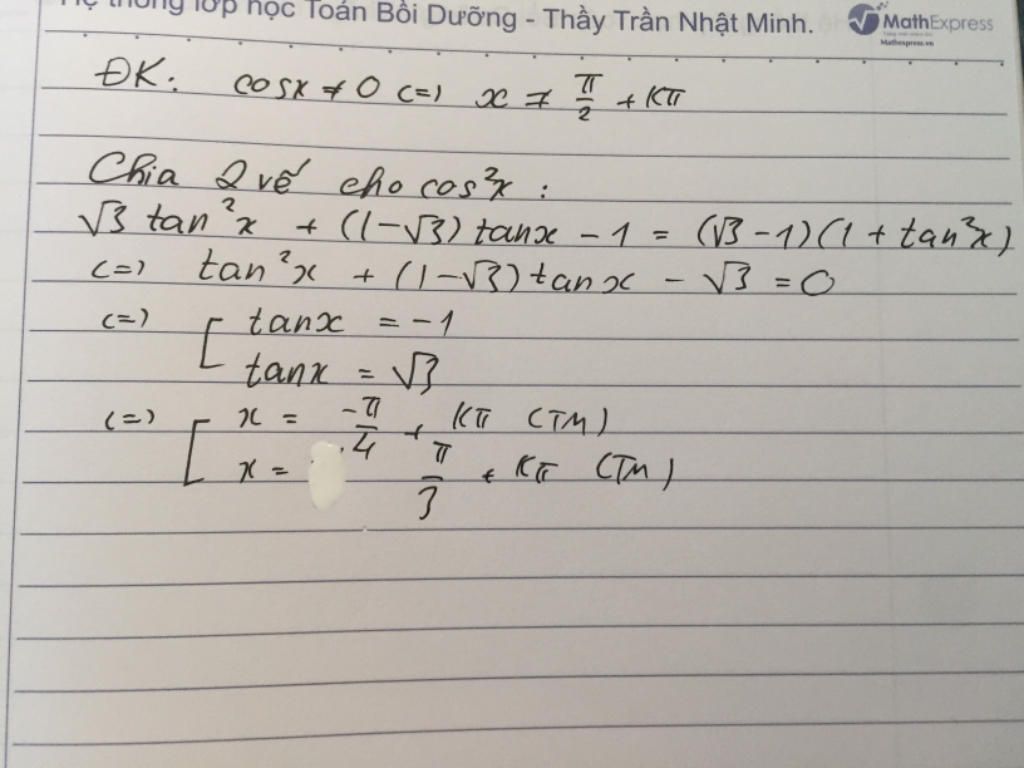 Hệ thống lớp học Toán Bồi Dưỡng - Thầy Trần Nhật Minh.
MathExpress
Mathexpress.vn
ĐK: cosx ≠ 0 <=> x ≠ π/2 + Kπ
Chia 2 vế cho cos²x :
√3 tan²x + (1-√3) tanx - 1 = (√3 - 1)(1 + tan²x)
<=> tan²x + (1-√3) tanx - √3 = 0
<=> [ tanx = -1
tanx = √3
<=> [ x = -π/4 + Kπ (TM)
x = π/3 + Kπ (TM)